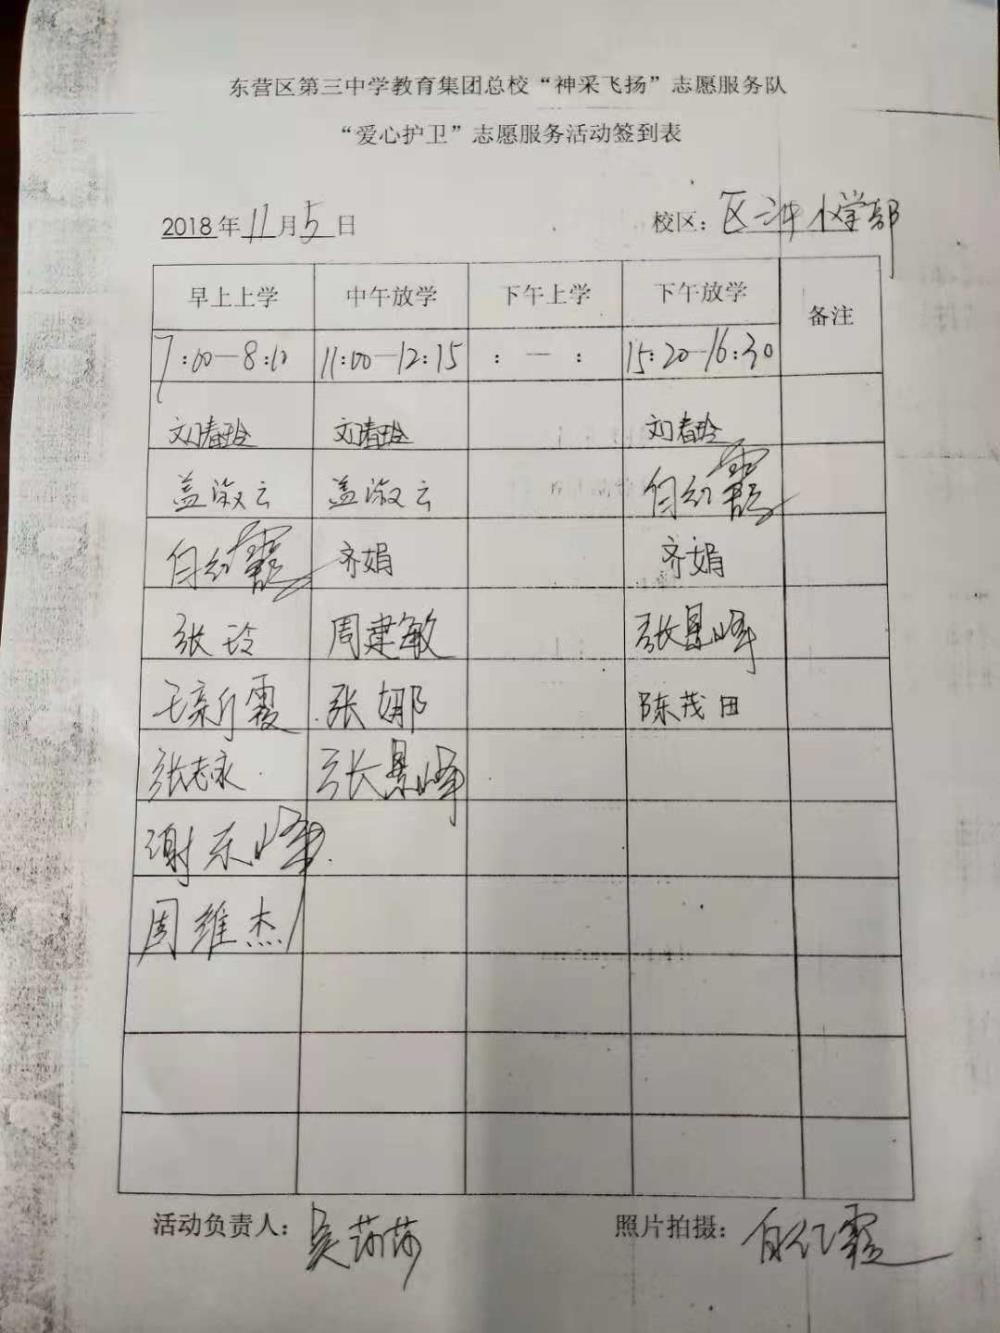 东营区第三中学教育集团总校“神采飞扬”志愿服务队
“爱心护卫”志愿服务活动签到表
2018年11月5日 校区：区三中小学部
早上上学 中午放学 下午上学 下午放学 备注
7:00—8:10 11:00—12:15 : — : 15:20—16:30
刘春玲 刘春玲 刘春玲
盖淑云 盖淑云 白红霞
白红霞 齐娟 齐娟
张玲 周建敏 张景峰
王新霞 张娜 陈茂田
张志永 张景峰
谢东峰
周维杰
活动负责人：吴莎莎 照片拍摄：白红霞